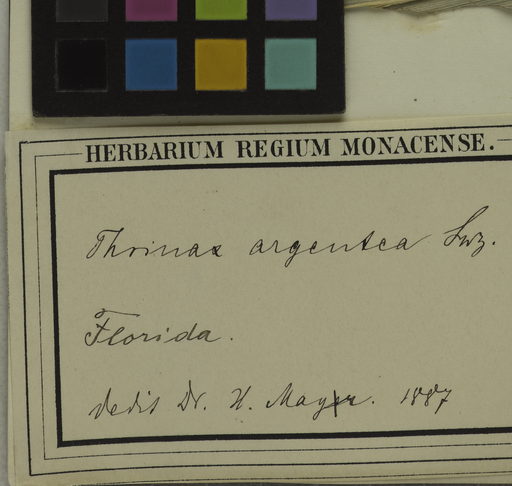 HERBARIUM REGIUM MONACENSE.
Thrinax argentea Swz.
Florida.
dedit Dr. H. Mayr. 1887